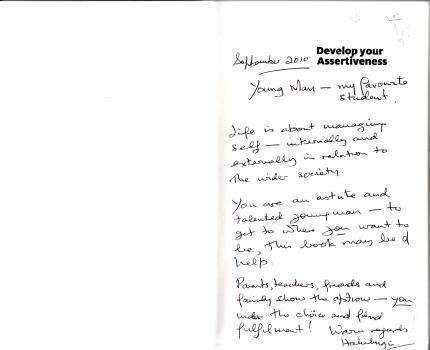 Develop your
Assertiveness
September 2010
Young Man — my favourite
student.
Life is about managing
self — internally and
externally in relation to
the wider society.
You are an astute and
talented young man — to
get to where you want to
be, this book may be of
help.
Parents, teachers, friends and
family show the options — you
make the choice and find
fulfilment! Warm regards